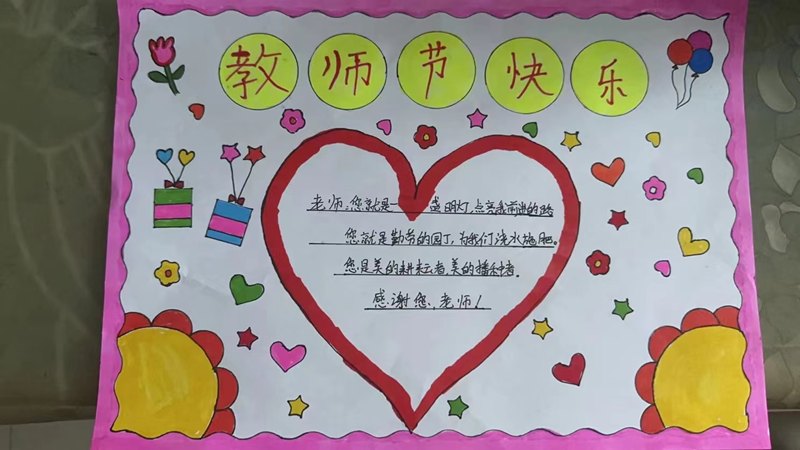 教师节快乐
老师：您就是一盏明灯，点亮我前进的路
您就是勤劳的园丁，为我们浇水施肥。
您是美的耕耘者，美的播种者。
感谢您、老师！